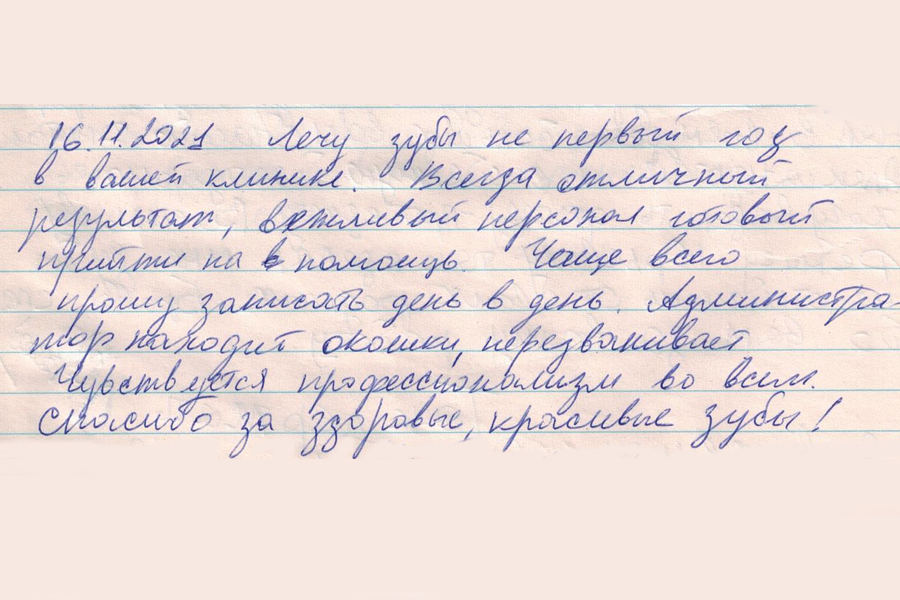 16.11.2021 Лечу зубы не первый год
в вашей клинике. Всегда отличный
результат, вежливый персонал готовый
прийти на помощь. Чаще всего
прошу записать день в день. Администра-
тор находит окошки, перезванивает
Чувствуется профессионализм во всем.
Спасибо за здоровые, красивые зубы!